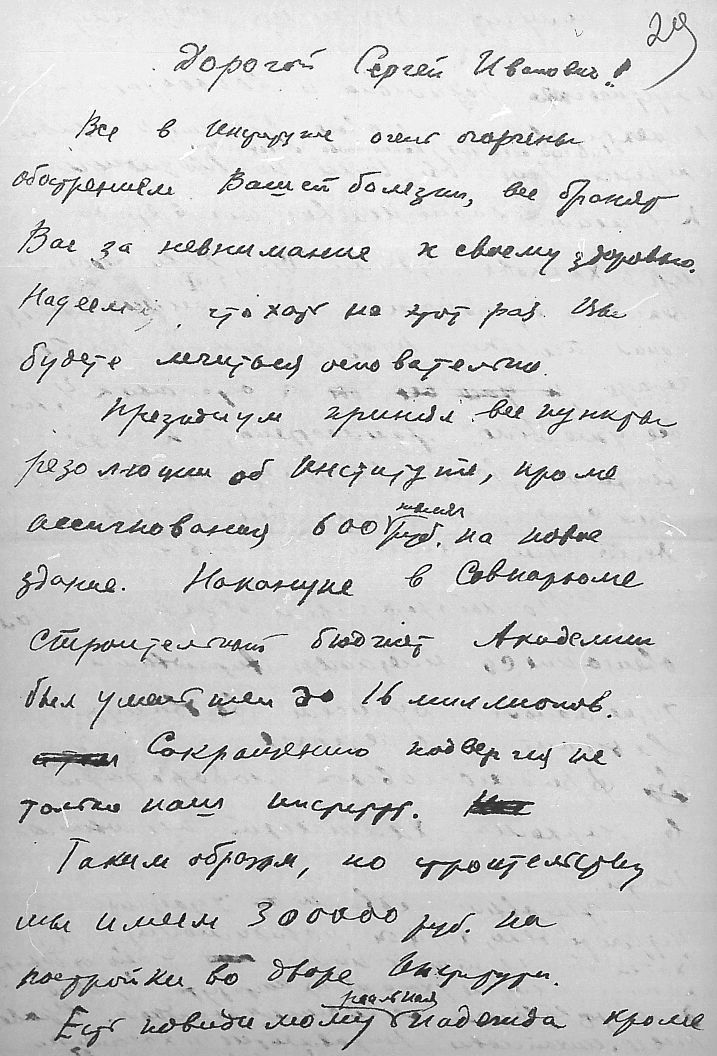 29
Дорогой Сергей Иванович!
Все в Институте очень огорчены
обострением Вашей болезни, все бранят
Вас за невнимание к своему здоровью.
Надеемся, что хоть на этот раз Вы
будете лечиться основательно.
Президиум принял все пункты
резолюции об Институте, кроме
ассигнования 600 тысяч руб. на новое
здание. Накануне в Совнаркоме
строительный бюджет Академии
был уменьшен до 16 миллионов.
Сокращению подвергся не
только наш институт.
Таким образом, по строительству
мы имеем 300000 руб. на
постройки во дворе Института.
Есть повидимому реальная надежда кроме